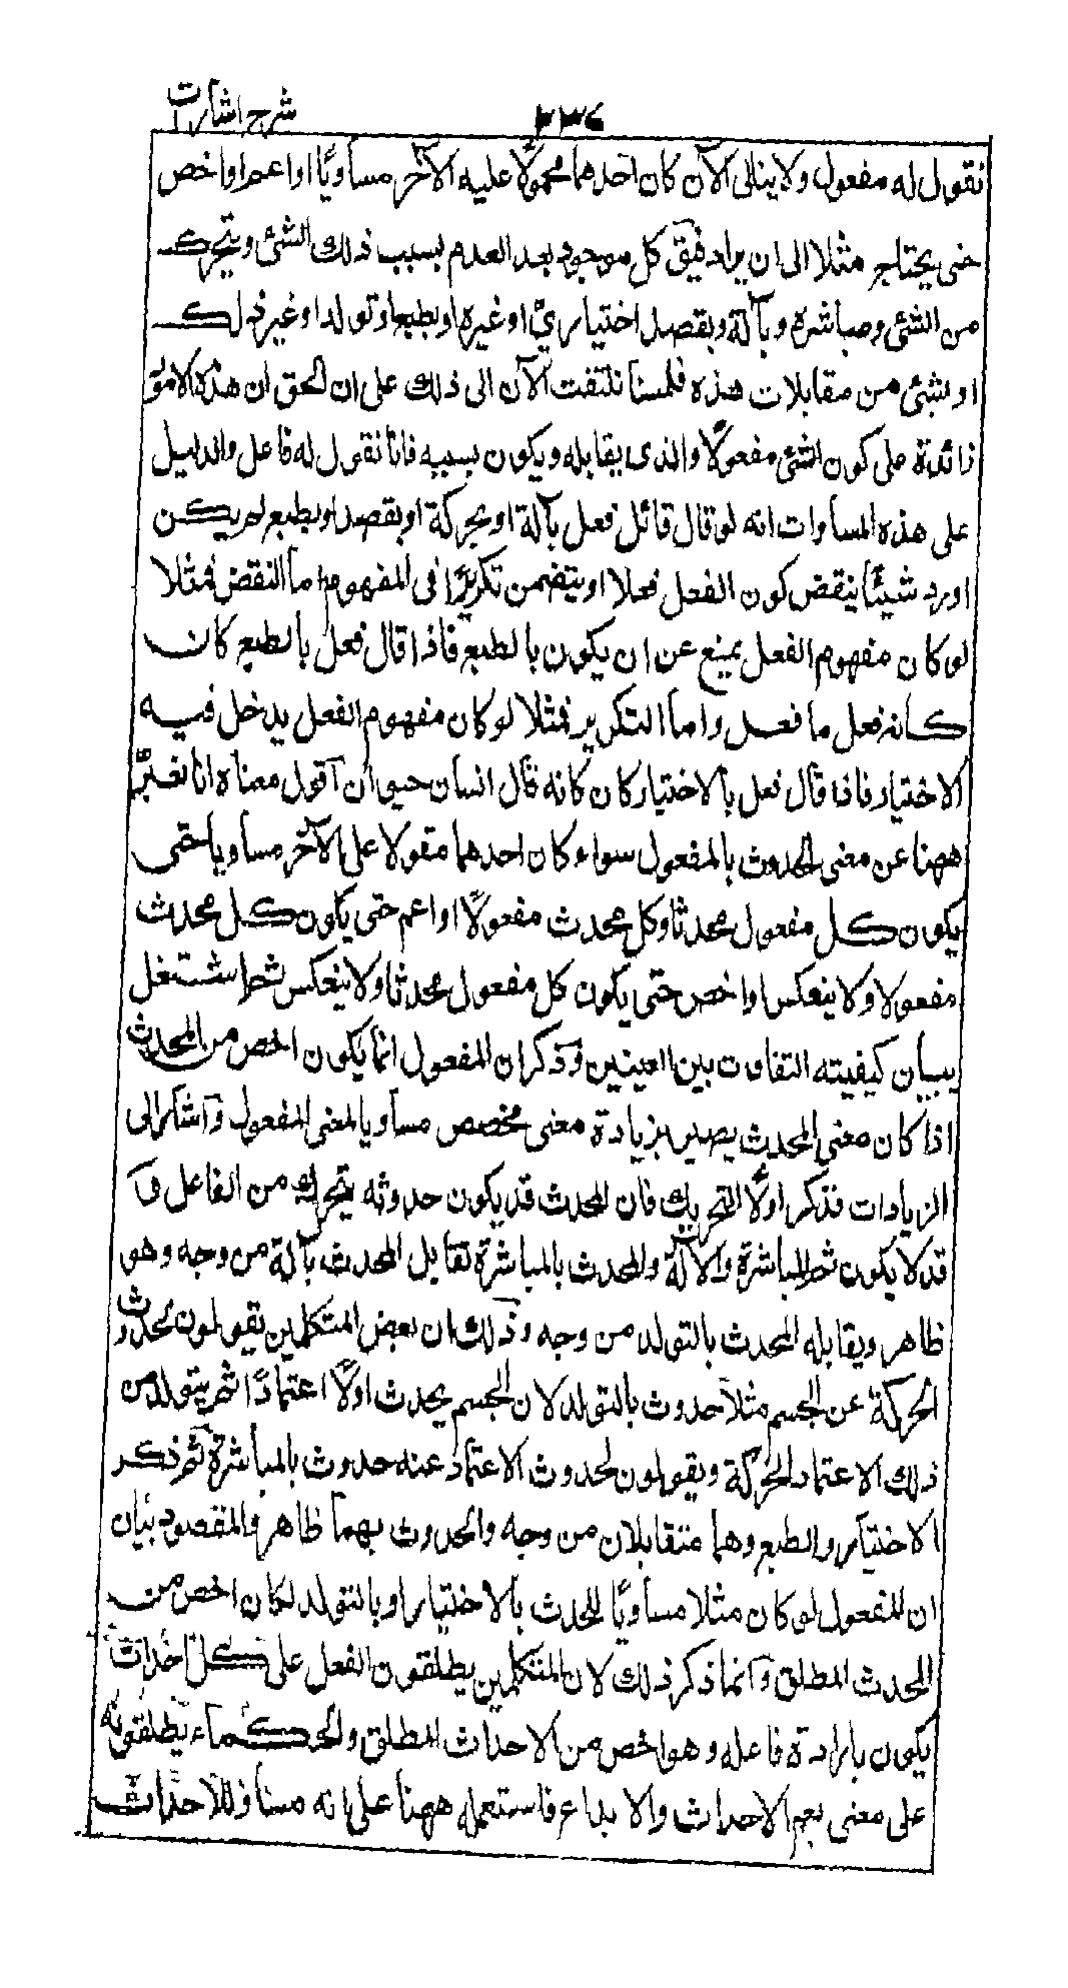 شرح اشارات
۲۳۶
نقول له مفعول ولا ينالى الآن كان احدهما محمولًا عليه الآخر مساويًا او اعم او اخص
حتى يحتاج مثلا الى ان يزاد فيق كل موجود بعد العدم بسبب ذلك الشئ وبتحرك
من الشئ ومباشرة وبآلة وبقصد اختياري او غيره او بطبع او تولد او غير ذلك
او بشئ من مقابلات هذه فلسنا نلتفت الآن الى ذلك على ان الحق ان هذه الامور
زائدة على كون الشئ مفعولًا والذى يقابله ويكون بسببه فانا نقول له فاعل والدليل
على هذه المساوات انه لو قال قائل فعل بآلة او بحركة او بقصد او بطبع لم يكن
اورد شيئًا ينقض كون الفعل فعلا او يتضمن تكريرًا فى المفهوم اما النقض فمثلا
لو كان مفهوم الفعل يمنع عن ان يكون بالطبع فاذا قال فعل بالطبع كان
كانه فعل ما فعل واما التكرير فمثلا لو كان مفهوم الفعل يدخل فيه
الاختيار فاذا قال فعل بالاختيار كان كانه قال انسان حيوان آقول معناه انا نعبّر
ههنا عن معنى الحدوث بالمفعول سواء كان احدهما مقولا على الآخر مساويا حتى
يكون كل مفعول محدثا وكل محدث مفعولًا او اعم حتى يكون كل محدث
مفعولا ولا ينعكس او اخص حتى يكون كل مفعول محدثا ولا ينعكس ثم اشتغل
ببيان كيفيته التفاوت بين المعنيين وذكر ان المفعول انما يكون اخص من المحدث
اذا كان معنى المحدث يصير بزيادة معنى مخصص مساويا لمعنى المفعول وآشار الى
الزيادات فذكر اولًا التحريك فان المحدث قد يكون حدوثه بتحريك من الفاعل و
قد لا يكون ثم المباشرة والآلة والمحدث بالمباشرة تقابل المحدث بآلة من وجه وهو
ظاهر ويقابله المحدث بالتولد من وجه وذلك ان بعض المتكلمين يقولون لحدوث
الحركة عن الجسم مثلا حدوث بالتولد لان الجسم يحدث اولًا اعتمادًا ثم يتولد من
ذلك الاعتماد الحركة ويقولون لحدوث الاعتماد عنه حدوث بالمباشرة ثم ذكر
الاختيار والطبع وهما متقابلان من وجه والحدوث بهما ظاهر والمقصود بيان
ان المفعول لو كان مثلا مساويًا للمحدث بالاختيار او بالتولد لكان اخص من
المحدث المطلق وآنما ذكر ذلك لان المتكلمين يطلقون الفعل على كل احداث
يكون بارادة فاعله وهو اخص من الاحداث المطلق والحكماء يطلقونه
على معنى يعم الاحداث والابداع فاستعمله ههنا على انه مساو للاحداث